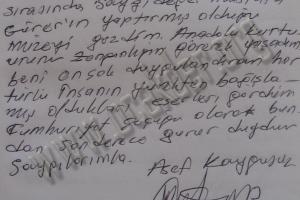 sırasında saygıdeğer
Gürer'in yaptırmış olduğu
müzeyi gezdim. Anadolu kurtu
zorlukları görerek yaşadım
beni en çok duygulandıran her
türlü insanın yürekten bağışla-
mış oldukları eserleri gördüm
Cumhuriyet olarak bun-
dan son derece gurur duydum
Saygılarımla.
Asef Kaygusuz